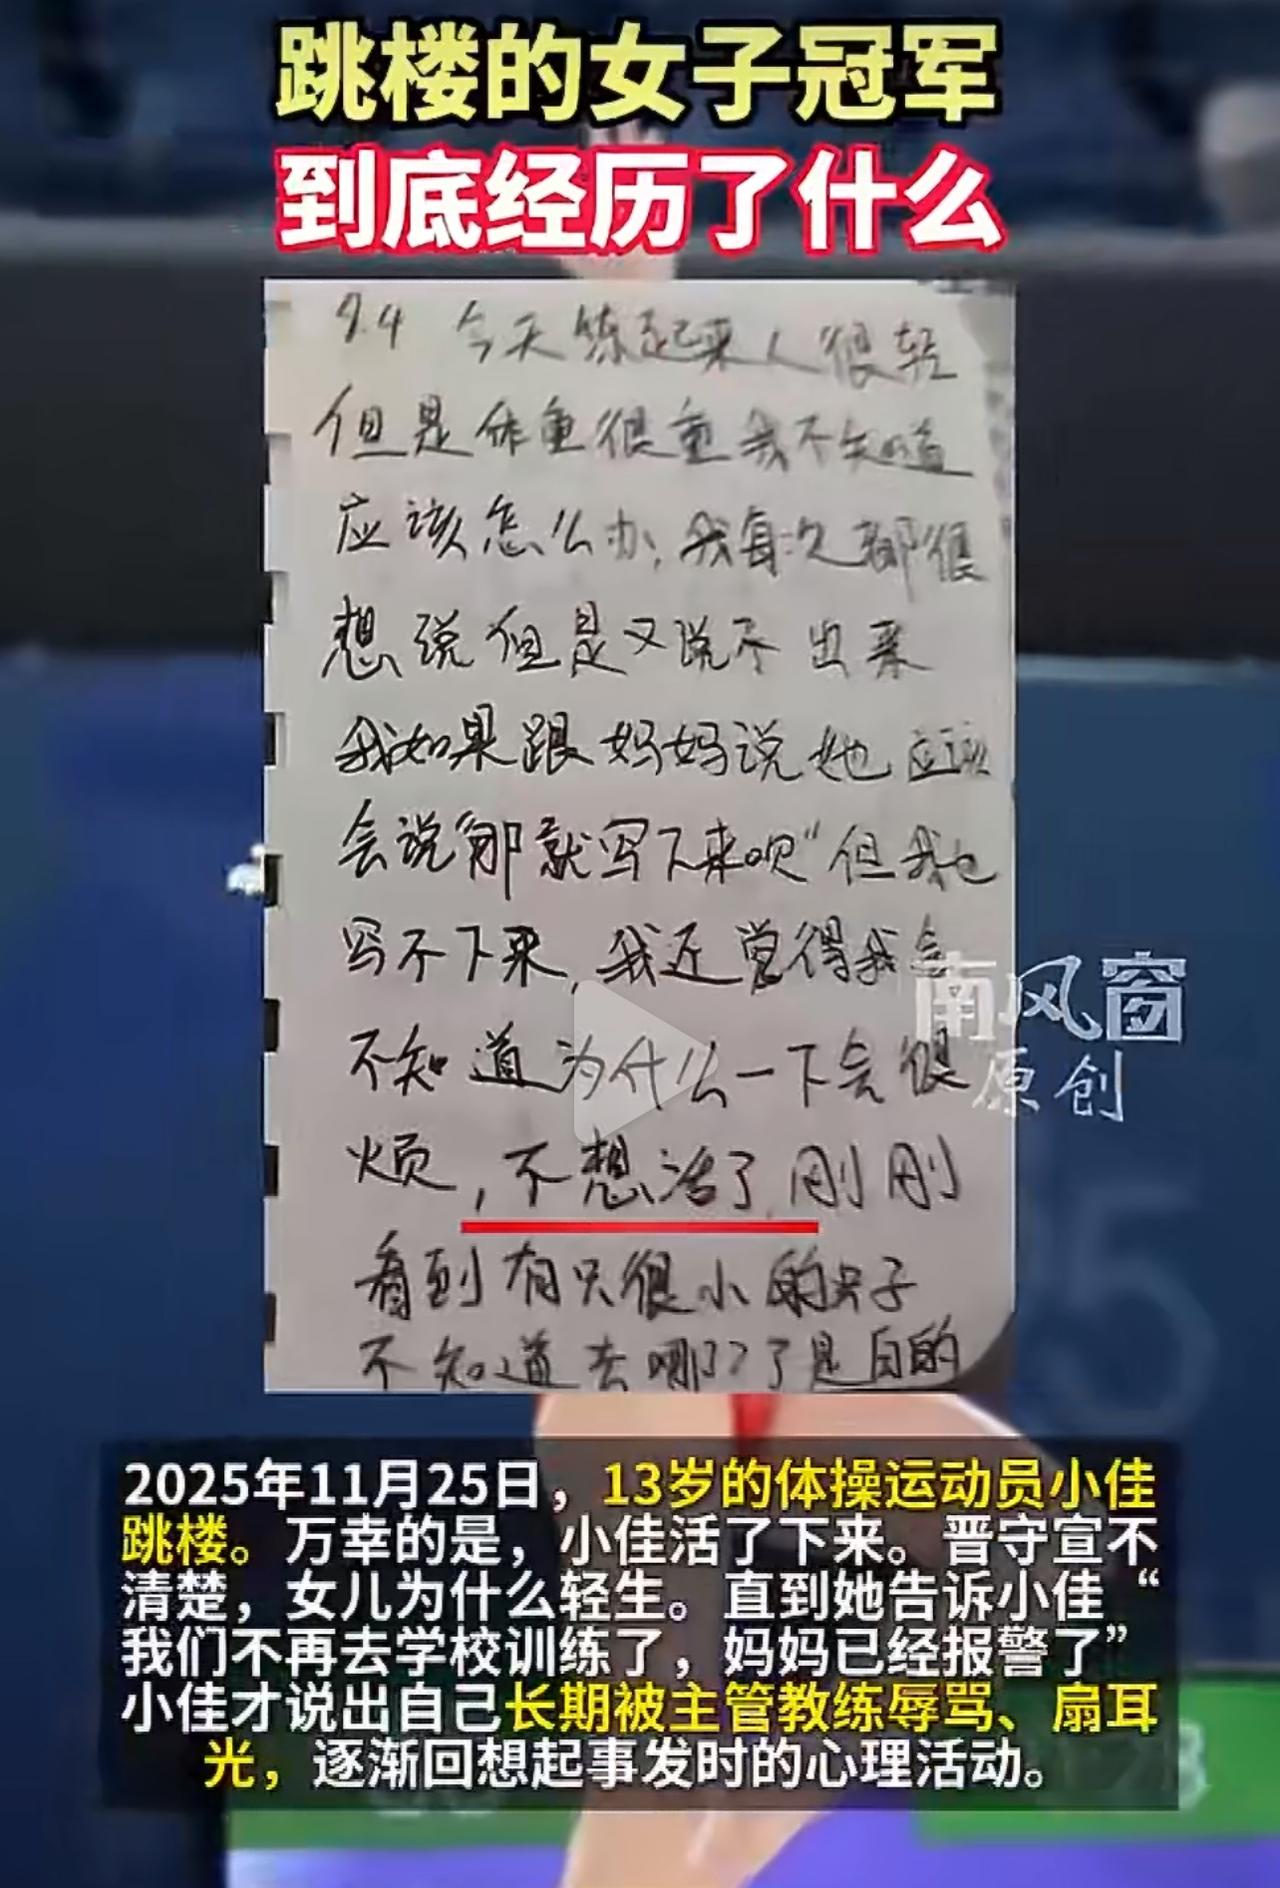 跳楼的女子冠军
到底经历了什么
9.4 今天练起来人很轻
但是体重很重我不知道
应该怎么办,我每次都很
想说但是又说不出来
我如果跟妈妈说她应该
会说那就写下来呗"但我也
写不下来,我还觉得我会
南风窗
原创
不知道为什么一下会很
烦,不想活了,刚刚
看到有只很小的
不知道去哪了是白的
2025年11月25日，13岁的体操运动员小佳
跳楼。万幸的是，小佳活了下来。晋守宣不
清楚，女儿为什么轻生。直到她告诉小佳“
我们不再去学校训练了，妈妈已经报警了”
小佳才说出自己长期被主管教练辱骂、扇耳
光，逐渐回想起事发时的心理活动。